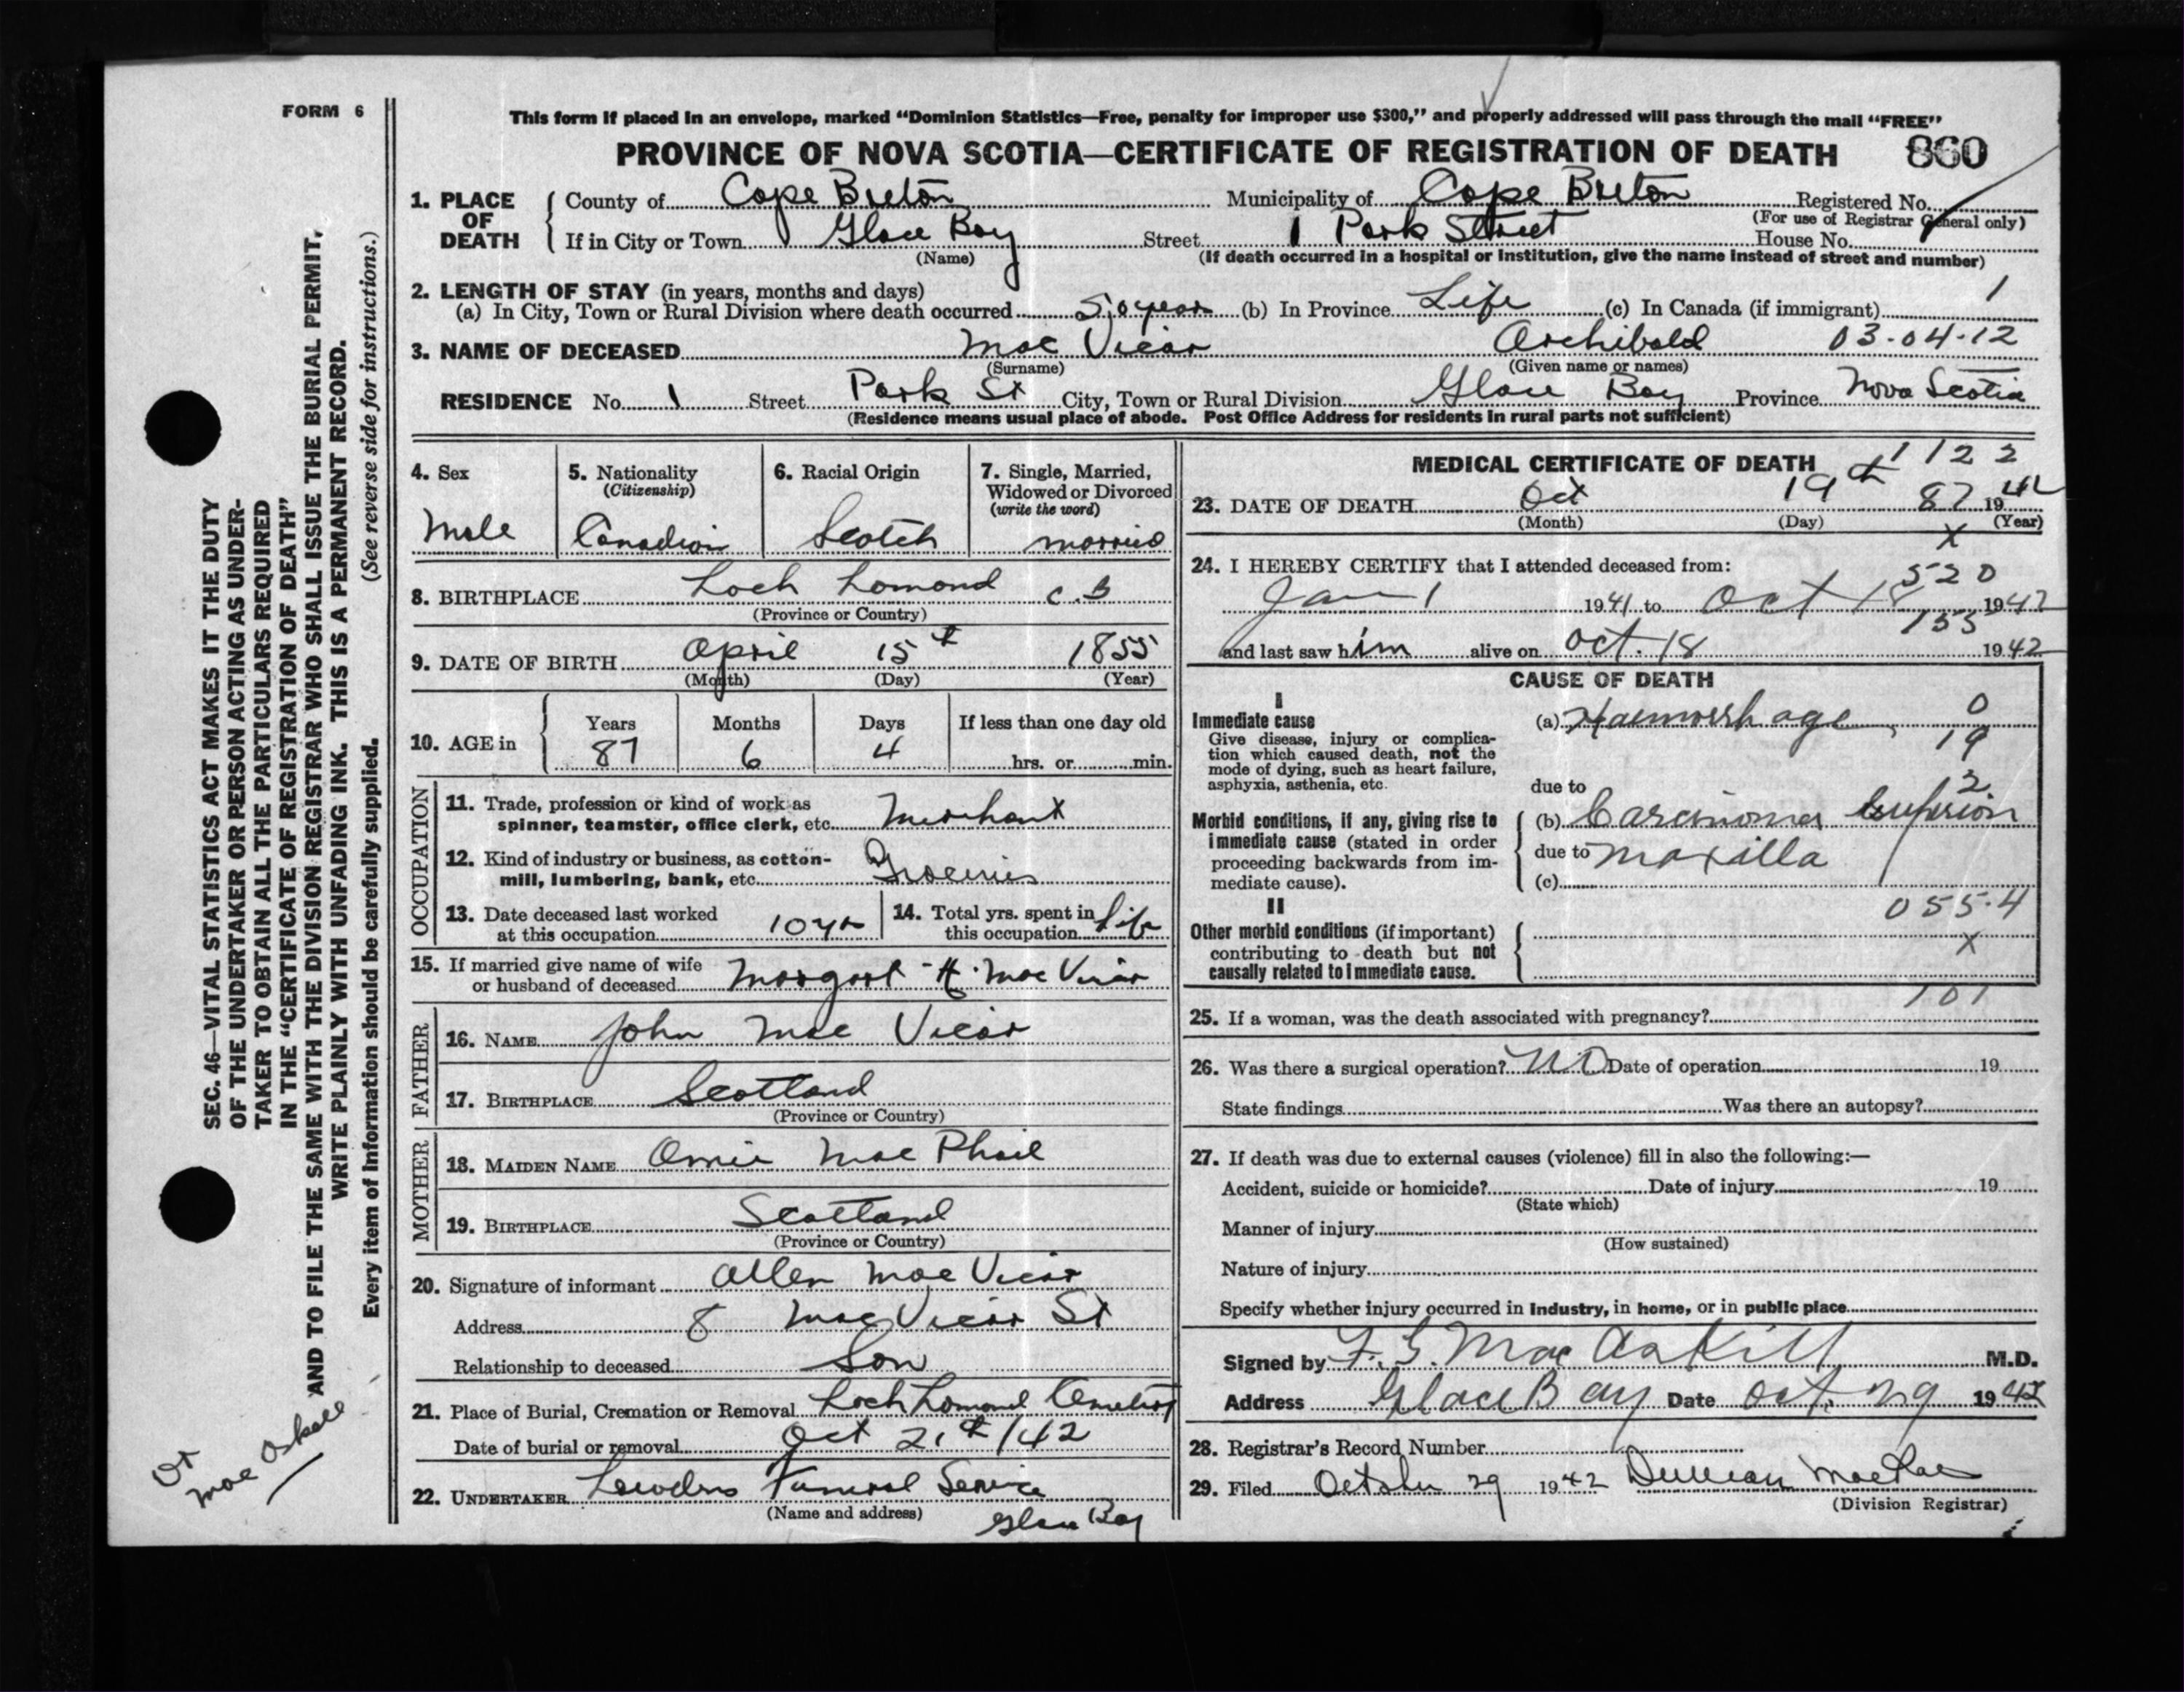 FORM 6
This form if placed in an envelope, marked “Dominion Statistics—Free, penalty for improper use $300,” and properly addressed will pass through the mail “FREE”
PROVINCE OF NOVA SCOTIA—CERTIFICATE OF REGISTRATION OF DEATH 860
1. PLACE OF DEATH
County of Cape Breton Municipality of Cape Breton Registered No.
(For use of Registrar General only)
If in City or Town Glace Bay Street 1 Park Street House No.
(Name) (If death occurred in a hospital or institution, give the name instead of street and number)
2. LENGTH OF STAY (in years, months and days) 1
(a) In City, Town or Rural Division where death occurred 50 years (b) In Province Life (c) In Canada (if immigrant)
3. NAME OF DECEASED Mac Vicar Archibald 03-04-12
(Surname) (Given name or names)
RESIDENCE No. 1 Street Park St City, Town or Rural Division Glace Bay Province Nova Scotia
(Residence means usual place of abode. Post Office Address for residents in rural parts not sufficient)
4. Sex
Male
5. Nationality
(Citizenship)
Canadian
6. Racial Origin
Scotch
7. Single, Married,
Widowed or Divorced
(write the word)
married
8. BIRTHPLACE Loch Lomond C.B
(Province or Country)
9. DATE OF BIRTH April 15th 1855
(Month) (Day) (Year)
10. AGE in
Years Months Days If less than one day old
87 6 4 hrs. or min.
OCCUPATION
11. Trade, profession or kind of work as
spinner, teamster, office clerk, etc. Merchant
12. Kind of industry or business, as cotton-
mill, lumbering, bank, etc. Groceries
13. Date deceased last worked
at this occupation 10 yr
14. Total yrs. spent in
this occupation Life
15. If married give name of wife
or husband of deceased Margaret H. Mac Vicar
FATHER
16. NAME John Mac Vicar
17. BIRTHPLACE Scotland
(Province or Country)
MOTHER
18. MAIDEN NAME Annie Mac Phail
19. BIRTHPLACE Scotland
(Province or Country)
20. Signature of informant Allen Mac Vicar
Address 8 MacVicar St
Relationship to deceased Son
21. Place of Burial, Cremation or Removal Loch Lomond Cemetery
Date of burial or removal Oct 21st/42
22. UNDERTAKER Funeral Service
(Name and address) Glace Bay
MEDICAL CERTIFICATE OF DEATH 1122
23. DATE OF DEATH Oct 19th 87 1942
(Month) (Day) (Year)
X
24. I HEREBY CERTIFY that I attended deceased from:
520
Jan 1 1941 to Oct 18 1942
155
and last saw him alive on Oct. 18 1942
CAUSE OF DEATH
I
Immediate cause
Give disease, injury or complica-
tion which caused death, not the
mode of dying, such as heart failure,
asphyxia, asthenia, etc.
(a) Haemorrhage 0
19
due to
Morbid conditions, if any, giving rise to
immediate cause (stated in order
proceeding backwards from im-
mediate cause).
(b) Carcinoma Superior
due to maxilla
(c)
II
055.4
Other morbid conditions (if important)
contributing to death but not
causally related to immediate cause.
X
101
25. If a woman, was the death associated with pregnancy?
26. Was there a surgical operation? NO Date of operation 19
State findings Was there an autopsy?
27. If death was due to external causes (violence) fill in also the following:—
Accident, suicide or homicide? Date of injury 19
(State which)
Manner of injury
(How sustained)
Nature of injury
Specify whether injury occurred in industry, in home, or in public place
Signed by F. G. MacAskill M.D.
Address Glace Bay Date Oct. 29 1942
28. Registrar's Record Number
29. Filed October 29 1942 Duncan MacRae
(Division Registrar)
SEC. 46—VITAL STATISTICS ACT MAKES IT THE DUTY
OF THE UNDERTAKER OR PERSON ACTING AS UNDER-
TAKER TO OBTAIN ALL THE PARTICULARS REQUIRED
IN THE “CERTIFICATE OF REGISTRATION OF DEATH”
AND TO FILE THE SAME WITH THE DIVISION REGISTRAR WHO SHALL ISSUE THE BURIAL PERMIT.
WRITE PLAINLY WITH UNFADING INK. THIS IS A PERMANENT RECORD.
Every item of information should be carefully supplied. (See reverse side for instructions.)
Dr
Mac Askell